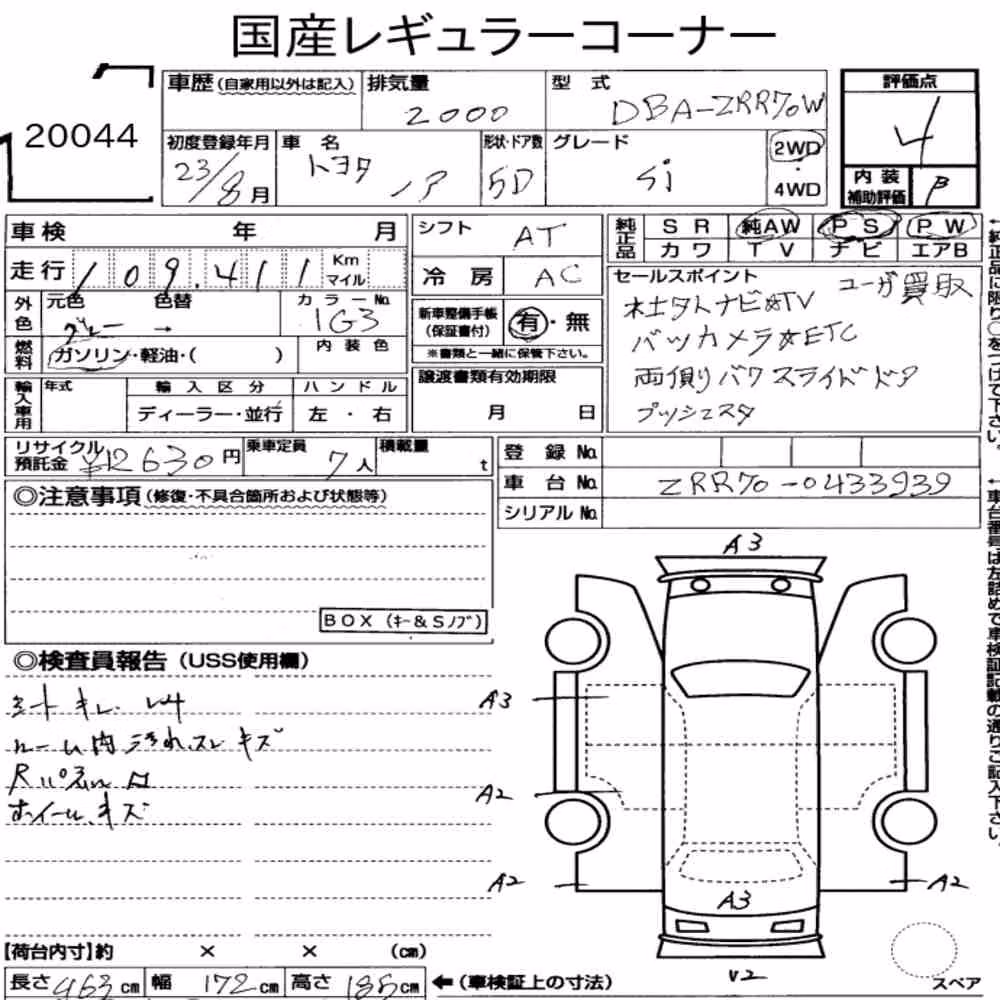 国産レギュラーコーナー
20044
車歴(自家用以外は記入)
排気量 2000
型式 DBA-ZRR70W
評価点 4
初度登録年月 23/8月
車名 トヨタ ノア
形状・ドア数 5D
グレード Si
2WD
4WD
内装補助評価 B
車検 年 月
シフト AT
純正品 SR 純AW PS PW
カワ TV ナビ エアB
走行 109.411 Km マイル
冷房 AC
セールスポイント ユーザ買取
社外ナビ☆TV
バックカメラ☆ETC
両側パワスライドドア
プッシュスタ
外色 元色 グレー → 色替 カラーNo. 1G3
新車整備手帳(保証書付) 有・無
※書類と一緒に保管下さい。
燃料 ガソリン・軽油・( ) 内装色
譲渡書類有効期限
月 日
輸入車用 年式 輸入区分 ハンドル
ディーラー・並行 左・右
リサイクル預託金 ¥12630円
乗車定員 7人
積載量 t
登録No.
車台No. ZRR70-0433939
シリアルNo.
◎注意事項(修復・不具合箇所および状態等)
BOX(キー&Sノブ)
◎検査員報告(USS使用欄)
シートキレ
ルーム内汚れ.スレ キズ
ホイール.キズ
A3
A3
A2
A2
A2
A3
V2
スペア
【荷台内寸】約 × × (cm)
長さ 463cm 幅 172cm 高さ 185cm ←(車検証上の寸法)
←純正品に限り○をつけて下さい。
←車台番号は左詰めで車検証記載の通りご記入下さい。